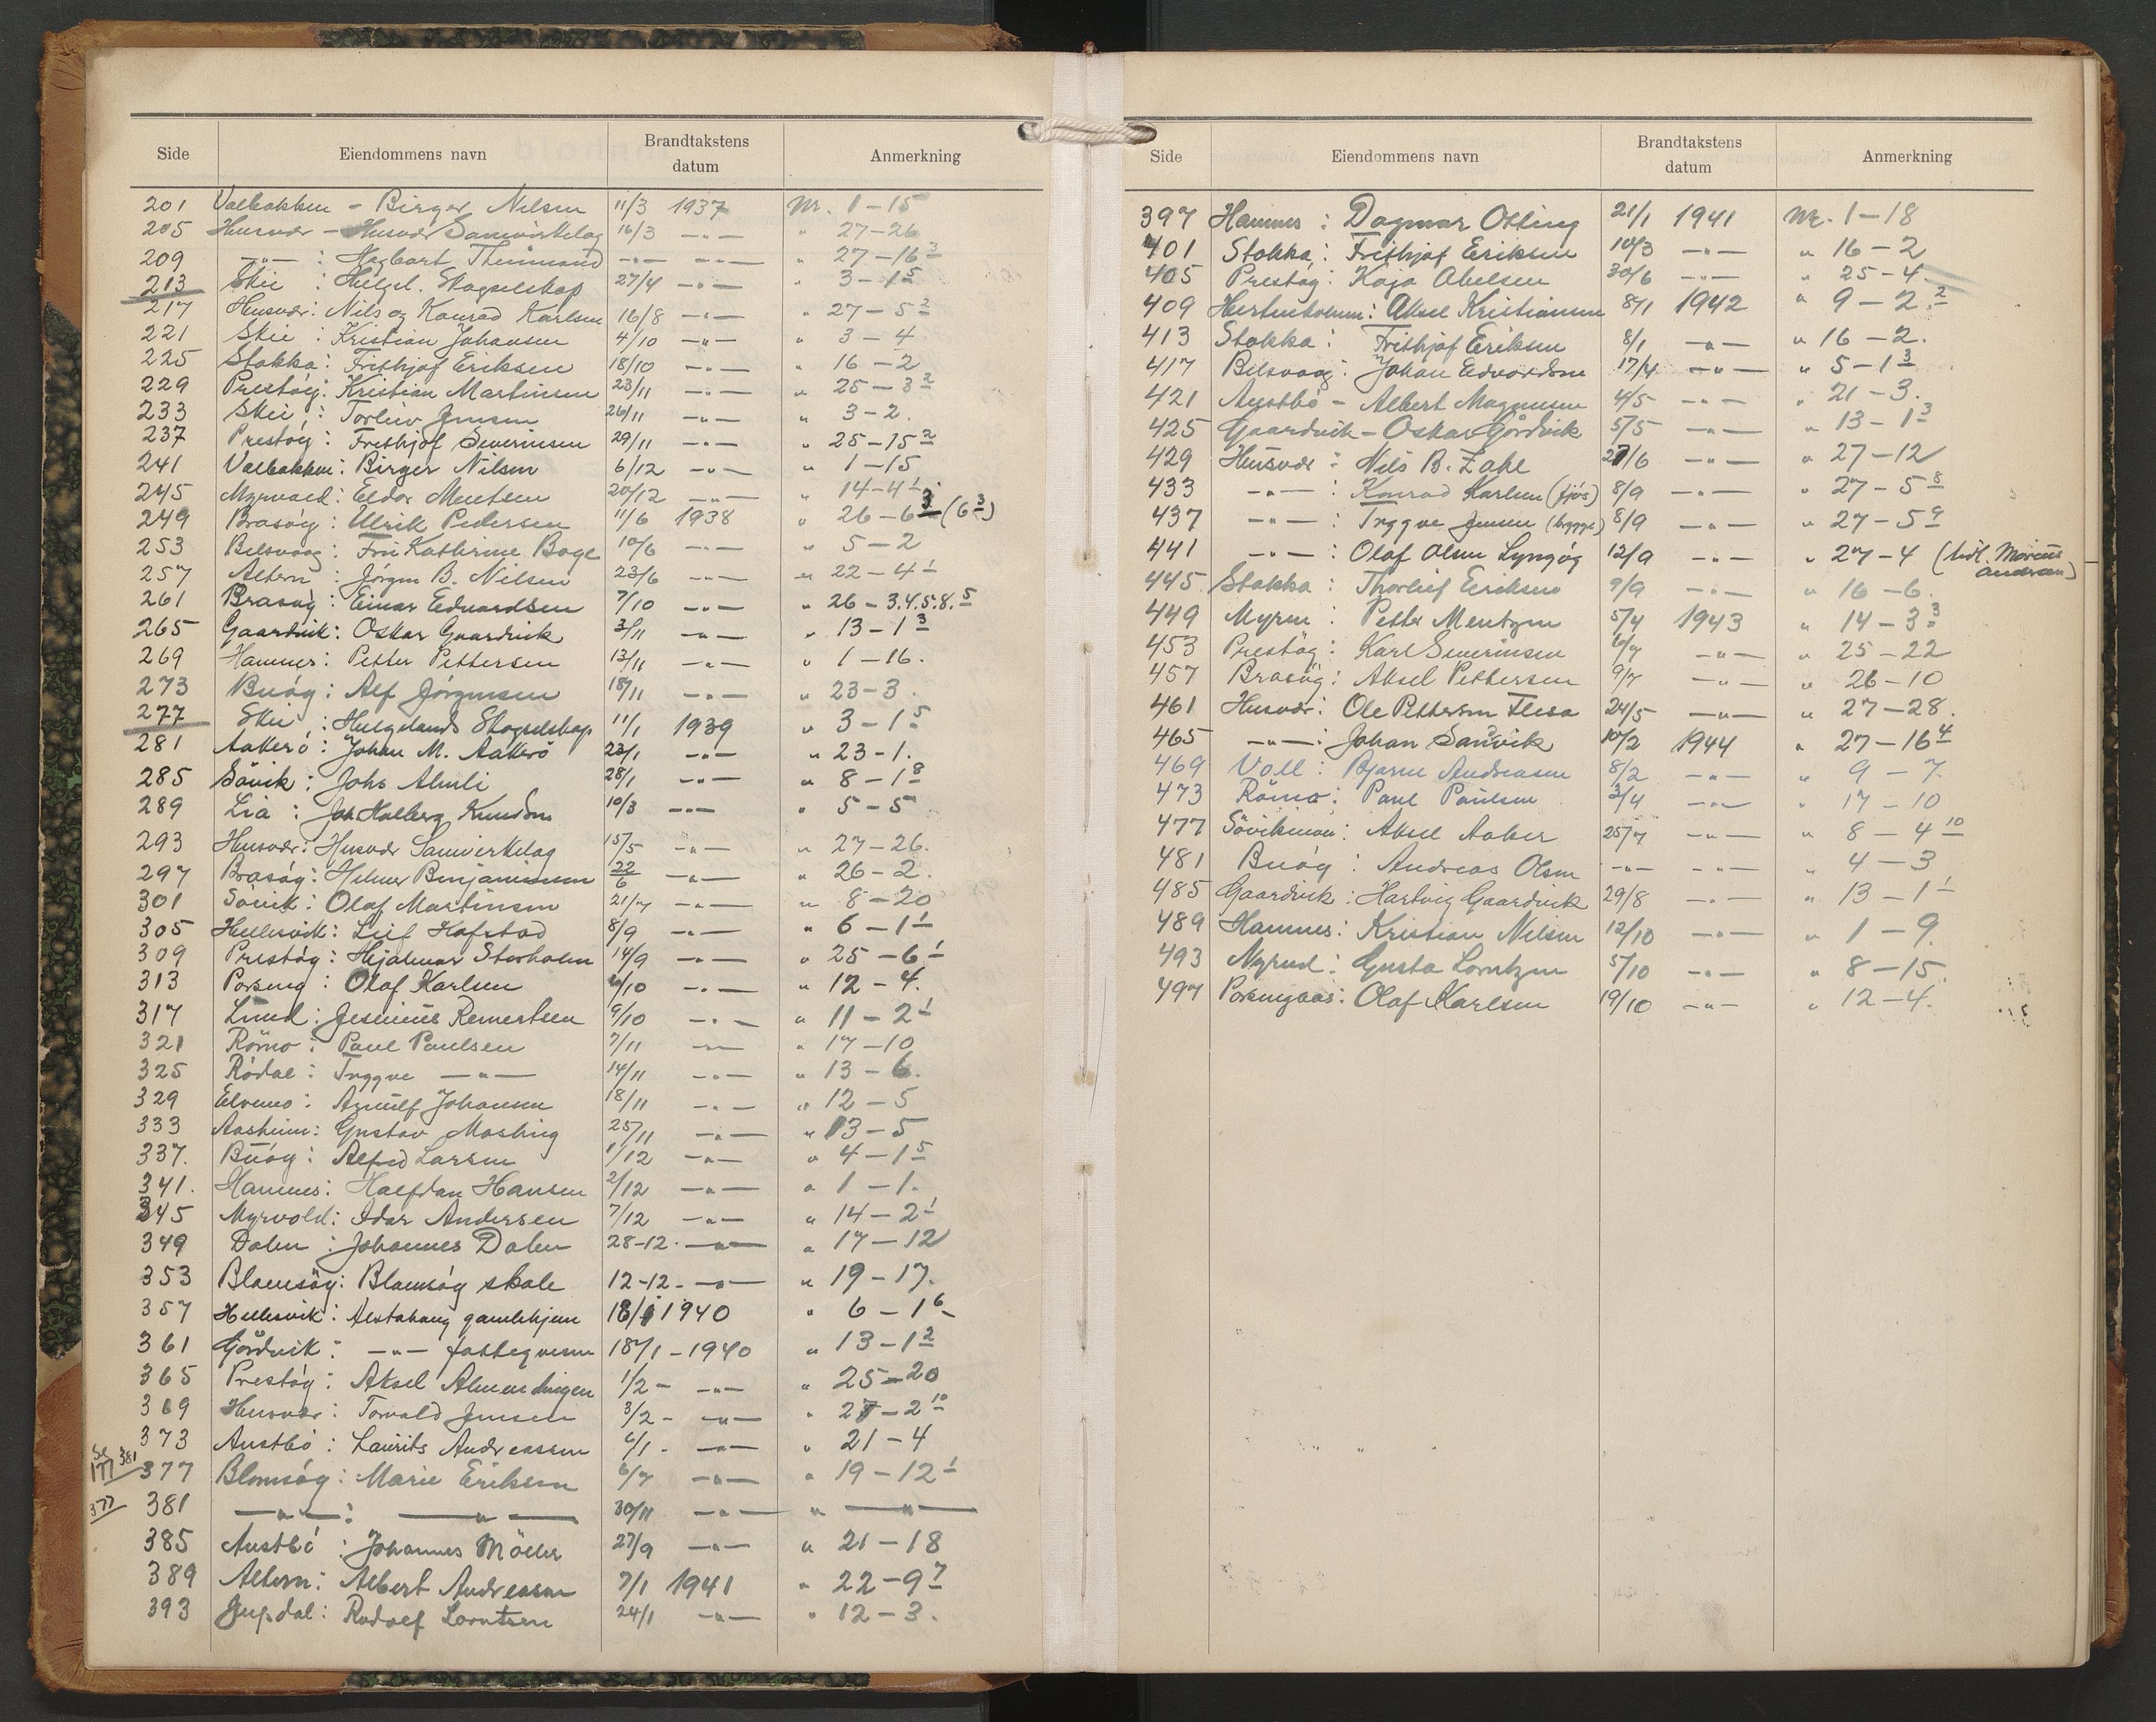 Side Eiendommens navn Brandtakstens datum Anmerkning
201 Valbakken - Birger Nilsen 11/3 1937 Nr. 1-15
205 Husvær - Husvær Samvirkelag 16/3 -"- " 27-26
209 -"- : Hagbart -"- -"- " 27-16 3
213 Skei : Helgel. Skogselskap 27/4 -"- " 3-1 5
217 Husvær: Nils og Konrad Karlsen 16/8 -"- " 27-5 2
221 Skei : Kristian Johansen 4/10 -"- " 3-4
225 Stokka: Frithjof Eriksen 18/10 -"- " 16-2
229 Prestöy: Kristian Martinsen 23/11 -"- " 25-3 2
233 Skei : Torleiv Jensen 26/11 -"- " 3-2.
237 Prestöy: Frithjof Severinsen 29/11 -"- " 25-15 2
241 Valbakken: Birger Nilsen 6/12 -"- " 1-15
245 Myrvold: Eldor Mentsen 20/12 -"- " 14-4 1
249 Brasöy: Ulrik Pedersen 11/6 1938 " 26-6 3 (6 3)
253 Belsvaag: Fru Kathrine Boge 10/6 -"- " 5-2
257 Altern : Jörgen B. Nilsen 23/6 -"- " 22-4 1
261 Brasöy: Einar Edvardsen 7/10 -"- " 26-3.4.5.8. 5
265 Gaardvik: Oskar Gaardvik 3/11 -"- " 13-1 3
269 Hamnes: Petter Pettersen 13/11 -"- " 1-16.
273 Buöy: Alf Jörgensen 18/11 -"- " 23-3.
277 Skei : Helgelands Skogselskap 11/1 1939 " 3-1 5
281 Aakerö: Johan M. Aakerö 23/1 -"- " 23-1.
285 Sövik: Johs Almli 28/1 -"- " 8-1 8
289 Lia : Joh Halberg Knudsen 10/3 -"- " 5-5
293 Husvær: Husvær Samvirkelag 15/5 -"- " 27-26.
297 Brasöy: Helmer Benjaminsen 22/6 -"- " 26-2.
301 Sövik: Olaf Martinsen 21/7 -"- " 8-20
305 Hellesvik: Leif Hofstad 8/9 -"- " 6-1 1
309 Prestöy: Hjalmar Storholm 14/9 -"- " 25-6 1
313 Forseng : Olaf Karlsen 4/10 -"- " 12-4.
317 Lund : Jesinius Reinertsen 9/10 -"- " 11-2 1
321 Römo : Paul Paulsen 7/11 -"- " 17-10
325 Rödal : Tryggve -"- 14/11 -"- " 13-6.
329 Elvemo : Arnulf Johansen 18/11 -"- " 12-5
333 Aasheim: Gustav Mosling 25/11 -"- " 13-5
337. Buöy : Alfred Larsen 1/12 -"- " 4-1 5
341. Hamnes: Halfdan Hansen 2/12 -"- " 1-1.
345 Myrvold: Idar Andersen 7/12 -"- " 14-2 1
349 Dalen : Johannes Dalen 28-12. -"- " 17-12
353 Blomsöy: Blomsöy skole 12-12- -"- " 19-17.
357 Hellesvik: Alstahaug gamlehjem 18/1 1940 " 6-1 6
361 Gårdvik: -"- fattigvesen 18/1-1940 " 13-1 2
365 Prestöy: Aksel Almendingen 1/2- -"- " 25-20
369 Husvær: Torvald Jensen 3/2- -"- " 27-2 10
373 Austbö : Laurits Andreassen 6/1- -"- " 21-4
Se 177 381 377 Blomsöy: Marie Eriksen 6/7 -"- " 19-12 1
377 381 -"- : -"- 30/11 -"- " -"-
385 Austbö : Johannes Möller 27/9 -"- " 21-18
389 Altern: Albert Andreasen 7/1 1941 " 22-9 7
393 Jupdal: Rudolf Lorntsen 24/1 -"- " 12-3.
Side Eiendommens navn Brandtakstens datum Anmerkning
397 Hamnes : Dagmar Otting 21/1 1941 Nr. 1-18
401 Stokka: Frithjof Eriksen 10/3 -"- " 16-2
405 Prestöy: Kaja Abelsen 30/6 -"- " 25-4
409 Hestenholmen: Aksel Kristiansen 8/1 1942 " 9-2 2
413 Stokka : Frithjof Eriksen 8/1 -"- " 16-2.
417 Belsvaag: Johan Edvardsen 17/4 -"- " 5-1 3
421 Austbö - Albert Magnusen 4/5 -"- " 21-3.
425 Gaardvik - Oskar Gårdvik 5/5 -"- " 13-1 3
429 Husvær : Nils B. Zahl 27/6 -"- " 27-12
433 -"- : Konrad Karlsen (fjös) 8/9 -"- " 27-5 8
437 -"- : Tryggve Jensen (brygge) 8/9 -"- " 27-5 9
441 -"- : Olaf Olsen Lyngöy 12/9 -"- " 27-4 (tidl. Marcus Andersen)
445 Stokka : Thorleif Eriksen 9/9 -"- " 16-6.
449 Myren : Petter Mentzen 5/4 1943 " 14-3 3
453 Prestöy : Karl Severinsen 6/7 -"- " 25-22
457 Brasöy: Aksel Pettersen 9/7 -"- " 26-10
461 Husvær: Ole Pettersen Flesa 24/5 -"- " 27-28.
465 -"- : Johan Sandvik 10/2 1944 " 27-16 4
469 Voll : Bjarne Andreasen 8/2 -"- " 9-7.
473 Römo : Paul Paulsen 3/4 -"- " 17-10
477 Sövikmoen: Aksel Aaker 25/7 -"- " 8-4 10
481 Buöy : Andreas Olsen -"- -"- " 4-3
485 Gaardvik : Hartvig Gaardvik 29/8 -"- " 13-1 1
489 Hamnes: Kristian Nilsen 12/10 -"- " 1-9.
493 Myrud : Gusta Lorntzen 5/10 -"- " 8-15.
497 Forsengaas: Olaf Karlsen 19/10 -"- " 12-4.